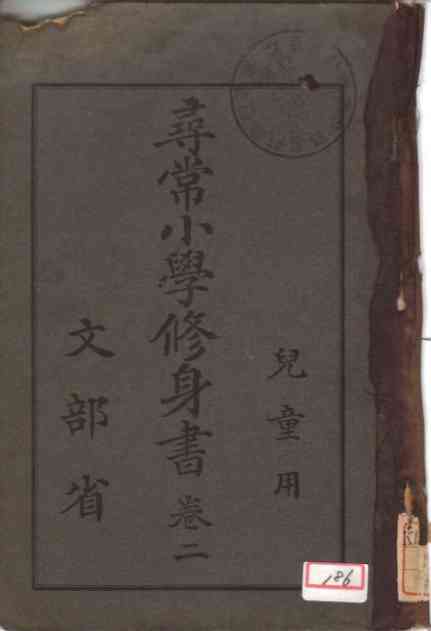 兒童用
尋常小學修身書 卷二
文部省
186